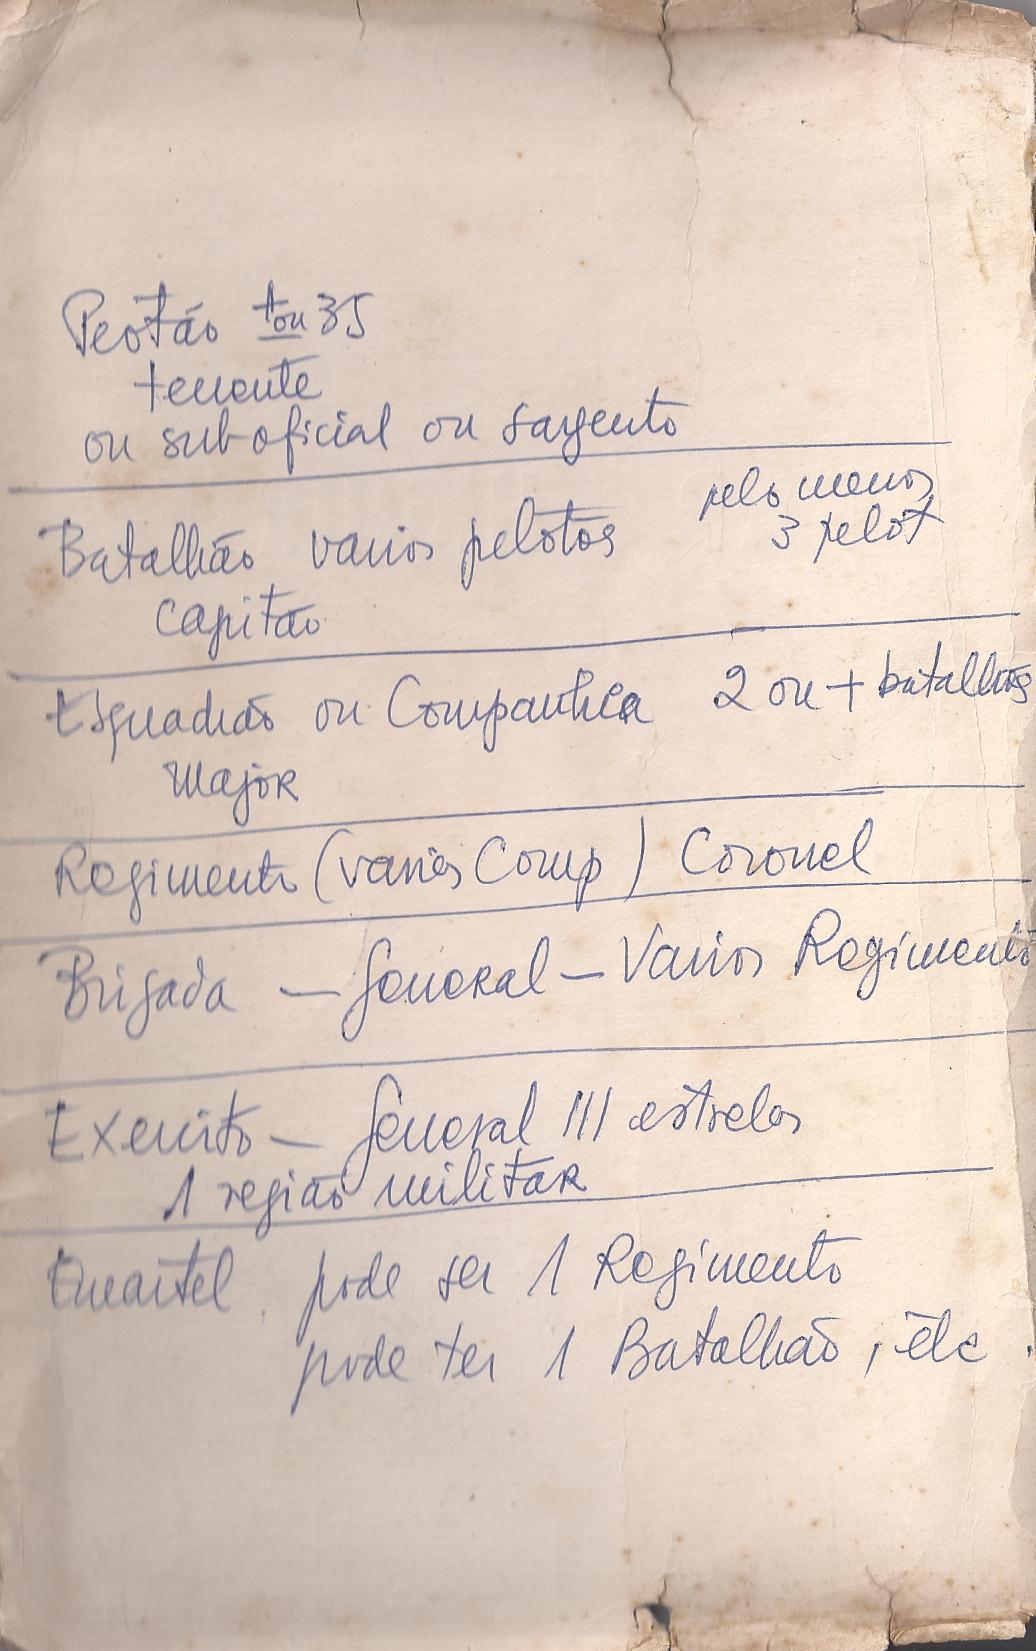 Peotão ±ou 35
tenente
ou sub-oficial ou sargento
Batalhão varios pelotos pelo menos
3 pelot
capitão
Esquadrão ou Companhia 2 ou + batalhões
Major
Regimento (varias Comp) Coronel
Brigada — General — Varios Regimento
Exercito — General III estrelas
1 região militar
Quartel pode ser 1 Regimento
pode ter 1 Batalhão, etc.